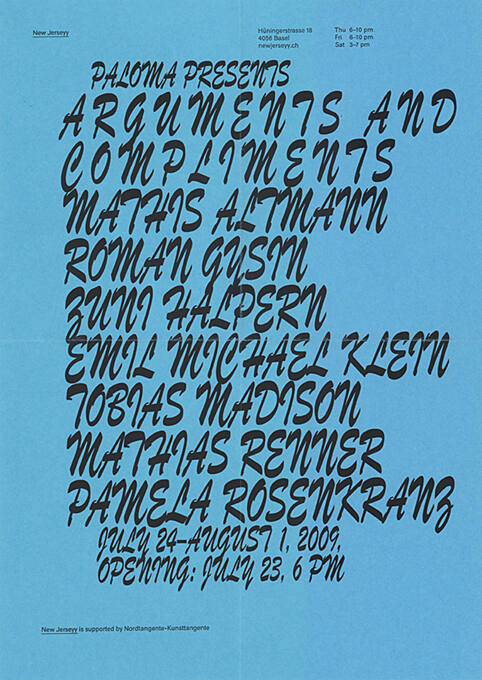 New Jerseyy
Hüningerstrasse 18
4056 Basel
newjerseyy.ch
Thu 6–10 pm
Fri 6–10 pm
Sat 3–7 pm
PALOMA PRESENTS
ARGUMENTS AND
COMPLIMENTS
MATHIS ALTMANN
ROMAN GYSIN
ZUNI HALPERN
EMIL MICHAEL KLEIN
TOBIAS MADISON
MATHIAS RENNER
PAMELA ROSENKRANZ
JULY 24–AUGUST 1, 2009,
OPENING: JULY 23, 6 PM
New Jerseyy is supported by Nordtangente-Kunsttangente